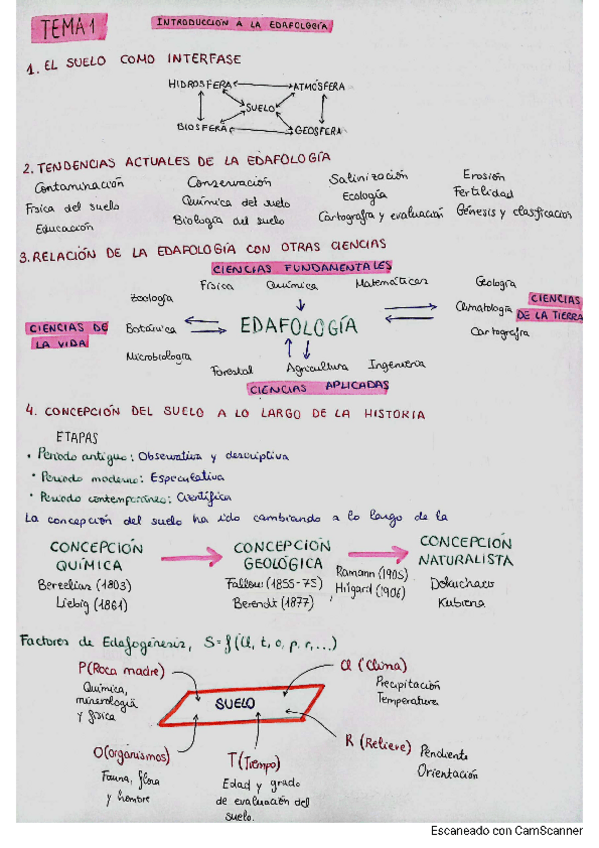 TEMA 1
INTRODUCCIÓN A LA EDAFOLOGÍA
1. EL SUELO COMO INTERFASE
HIDROSFERA ATMÓSFERA
SUELO
BIOSFERA GEOSFERA
2. TENDENCIAS ACTUALES DE LA EDAFOLOGÍA
Contaminación Conservación Salinización Erosión
Física del suelo Química del suelo Ecología Fertilidad
Educación Biología del suelo Cartografía y evaluación Génesis y clasificación
3. RELACIÓN DE LA EDAFOLOGÍA CON OTRAS CIENCIAS
CIENCIAS FUNDAMENTALES
Física Química Matemáticas Geología
Zoología Climatología CIENCIAS
CIENCIAS DE Botánica EDAFOLOGÍA DE LA TIERRA
LA VIDA Cartografía
Microbiología
Forestal Agricultura Ingeniería
CIENCIAS APLICADAS
4. CONCEPCIÓN DEL SUELO A LO LARGO DE LA HISTORIA
ETAPAS
• Periodo antiguo: Observativa y descriptiva
• Periodo moderno: Especulativa
• Periodo contemporáneo: Científica
La concepción del suelo ha ido cambiando a lo largo de la
CONCEPCIÓN CONCEPCIÓN CONCEPCIÓN
QUÍMICA GEOLÓGICA NATURALISTA
Berzelius (1803) Fallou (1855-75) Ramann (1905) Dokuchaev
Liebig (1861) Berendt (1877) Hilgard (1906) Kubiena
Factores de Edafogénesis, S=f(Cl, t, o, p, r,...)
P(Roca madre) Cl (Clima)
Química, Precipitación
minerología Temperatura
y física
SUELO
O(organismos) T(Tiempo) R (Relieve) Pendiente
Fauna, flora Edad y grado Orientación
y hombre de evaluación del
suelo.
Escaneado con CamScanner